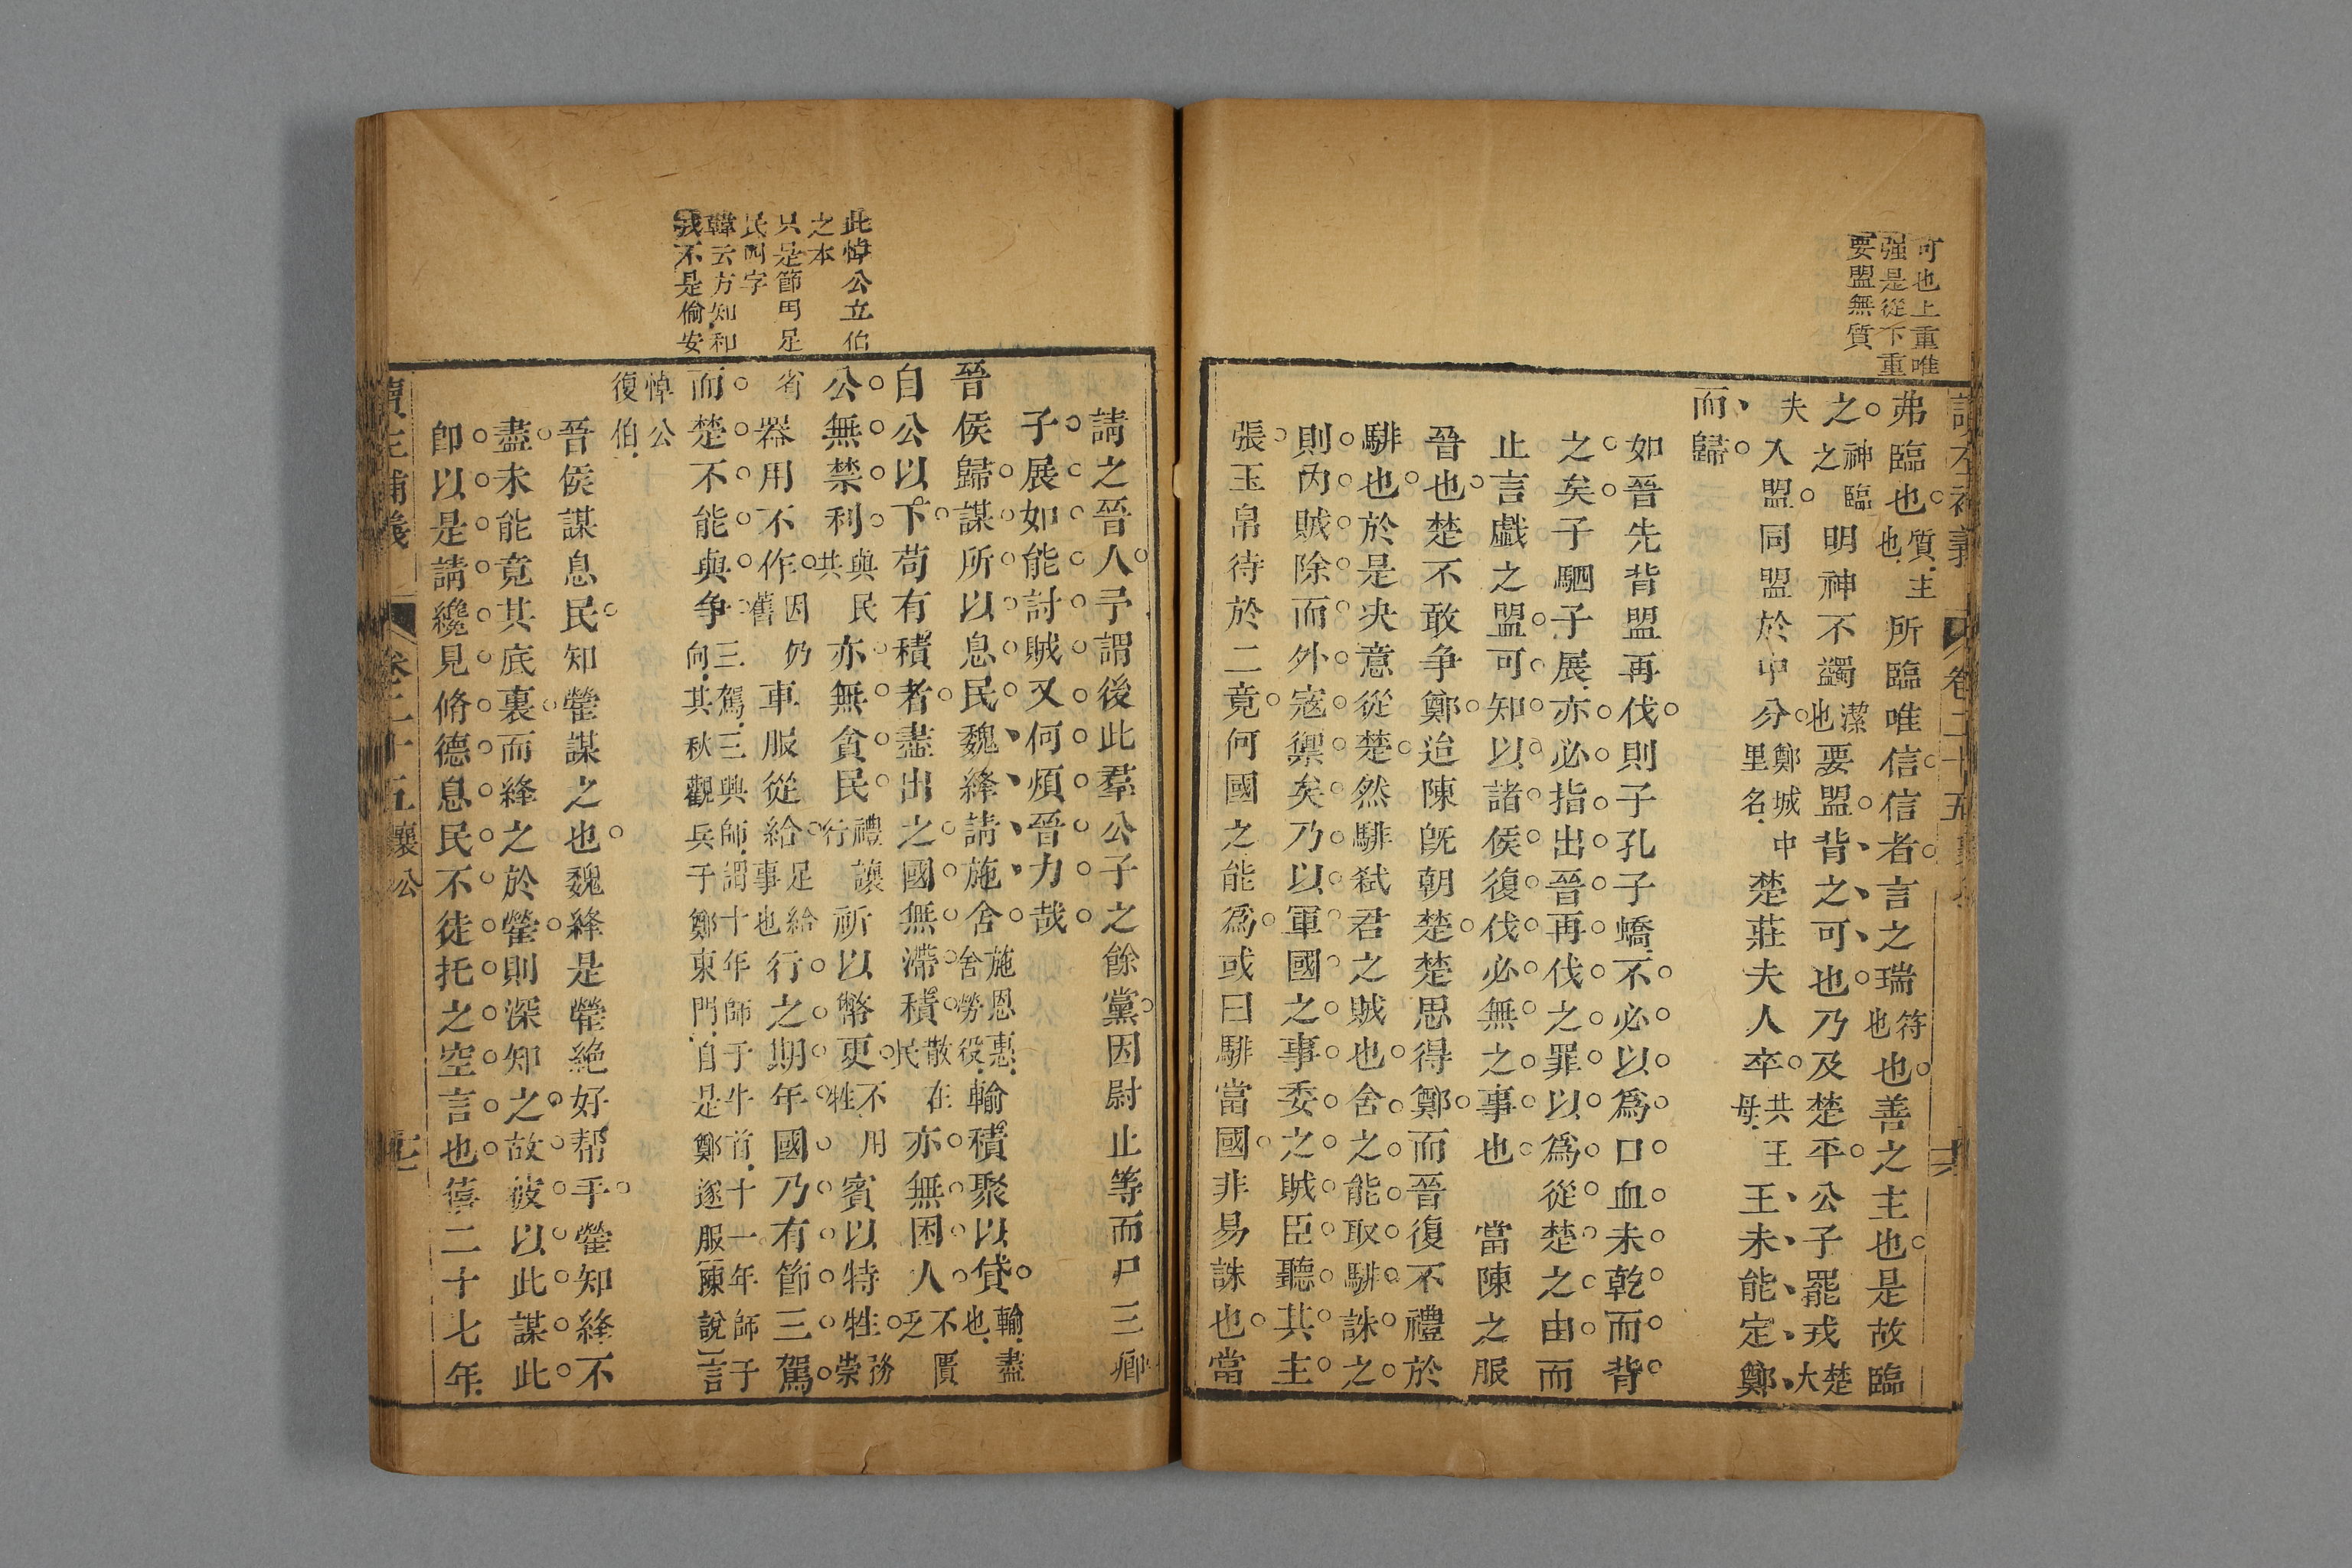 可也上重唯
强是從下重
要盟無質
讀左補義 卷二十五 襄公 十六
弗臨也質主也所臨唯信信者言之瑞符也也善之主也是故臨
之神臨之明神不蠲潔也要盟背之可也乃及楚平公子罷戎楚大
夫入盟同盟於中分鄭城中里名楚莊夫人卒共王母王未能定鄭
而歸
如晉先背盟再伐則子孔子蟜不必以爲口血未乾而背
之矣子駟子展亦必指出晉再伐之罪以爲從楚之由而
止言戲之盟可知以諸侯復伐必無之事也 當陳之服
晉也楚不敢争鄭迨陳旣朝楚楚思得鄭而晉復不禮於
騑也於是央意從楚然騑弑君之賊也舍之能取騑誅之
則內賊除而外寇禦矣乃以軍國之事委之賊臣聽其主
張玉帛待於二竟何國之能爲或曰騑當國非易誅也當
請之晉人予謂後此羣公子之餘黨因尉止等而尸三卿
子展如能討賊又何煩晉力哉
晉侯歸謀所以息民魏絳請施舍施恩惠舍勞役輸積聚以貸輸盡也
自公以下苟有積者盡出之國無滯積散在民亦無困人不匱乏
公無禁利與民共亦無貪民禮讓行祈以幣更不用牲賓以特牲務崇
省器用不作因仍舊車服從給足給事也行之期年國乃有節三駕
而楚不能與争三駕三興師謂十年師于牛首十一年師于向其秋觀兵于鄭東門自是鄭遂服陳說言
悼公復伯
晉侯謀息民知罃謀之也魏絳是罃絶好帮手罃知絳不
盡未能竟其底裏而絳之於罃則深知之故彼以此謀此
卽以是請纔見脩德息民不徒托之空言也僖二十七年
此悼公立伯
之本
只是節用足
民四字
韓云方知和
戎不是偷安
讀左補義 卷二十五 襄公 十七